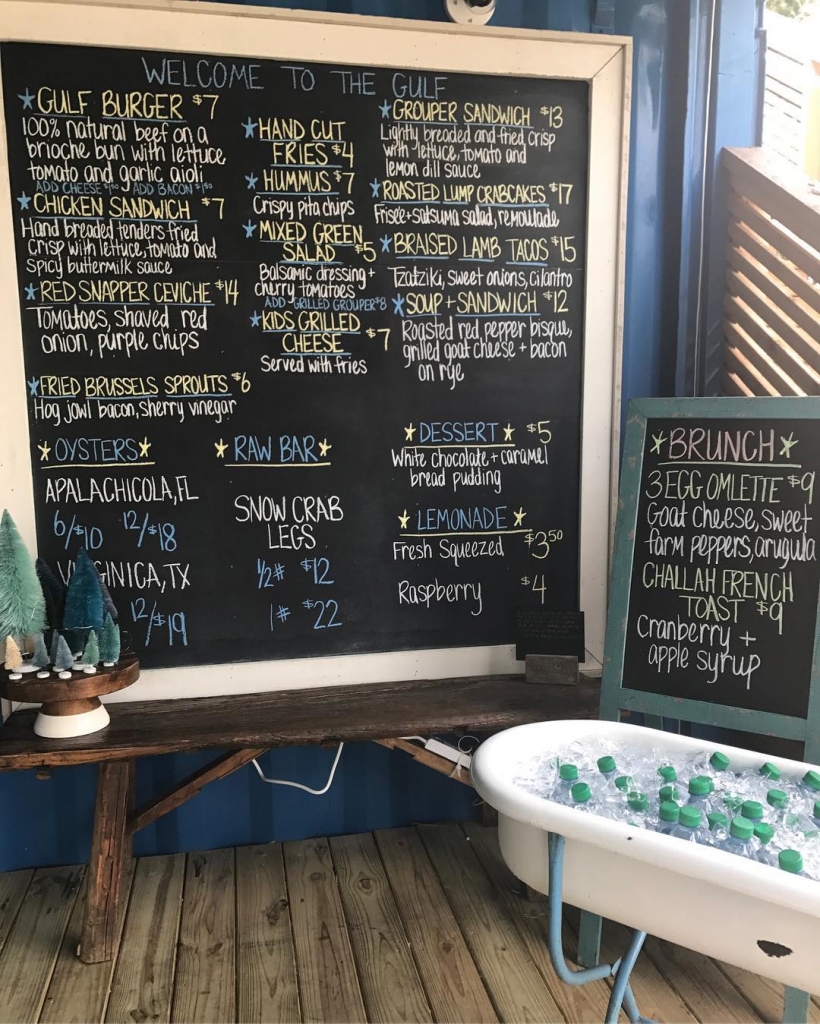 WELCOME TO THE GULF
GULF BURGER $7
100% natural beef on a
brioche bun with lettuce
tomato and garlic aioli
ADD CHEESE $1.50 / ADD BACON $1.50
CHICKEN SANDWICH $7
Hand breaded tenders fried
crisp with lettuce, tomato and
spicy buttermilk sauce
RED SNAPPER CEVICHE $14
Tomatoes, shaved red
onion, purple chips
FRIED BRUSSELS SPROUTS $6
Hog jowl bacon, sherry vinegar
HAND CUT
FRIES $4
HUMMUS $7
Crispy pita chips
MIXED GREEN
SALAD $5
Balsamic dressing +
cherry tomatoes
ADD GRILLED GROUPER $8
KIDS GRILLED
CHEESE $7
Served with fries
GROUPER SANDWICH $13
Lightly breaded and fried crisp
with lettuce, tomato and
lemon dill sauce
ROASTED LUMP CRABCAKES $17
Frisée + satsuma salad, remoulade
BRAISED LAMB TACOS $15
Tzatziki, sweet onions, cilantro
SOUP + SANDWICH $12
Roasted red pepper bisque,
grilled goat cheese + bacon
on rye
OYSTERS
APALACHICOLA, FL
6/$10 12/$18
VIRGINICA, TX
12/$19
RAW BAR
SNOW CRAB
LEGS
1/2# $12
1# $22
DESSERT $5
White chocolate + caramel
bread pudding
LEMONADE
Fresh Squeezed $3.50
Raspberry $4
BRUNCH
3 EGG OMLETTE $9
Goat cheese, sweet
farm peppers, arugula
CHALLAH FRENCH
TOAST $9
Cranberry +
apple syrup